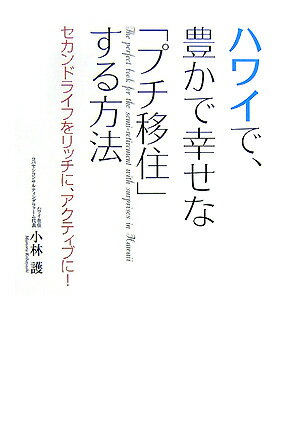 ハワイで、
豊かで幸せな
「プチ移住」
The perfect book for the semi-retirement with surprises in Hawaii
する方法
セカンドライフをリッチに、アクティブに!
ハワイ在住
小林 護
Mamoru Kobayashi